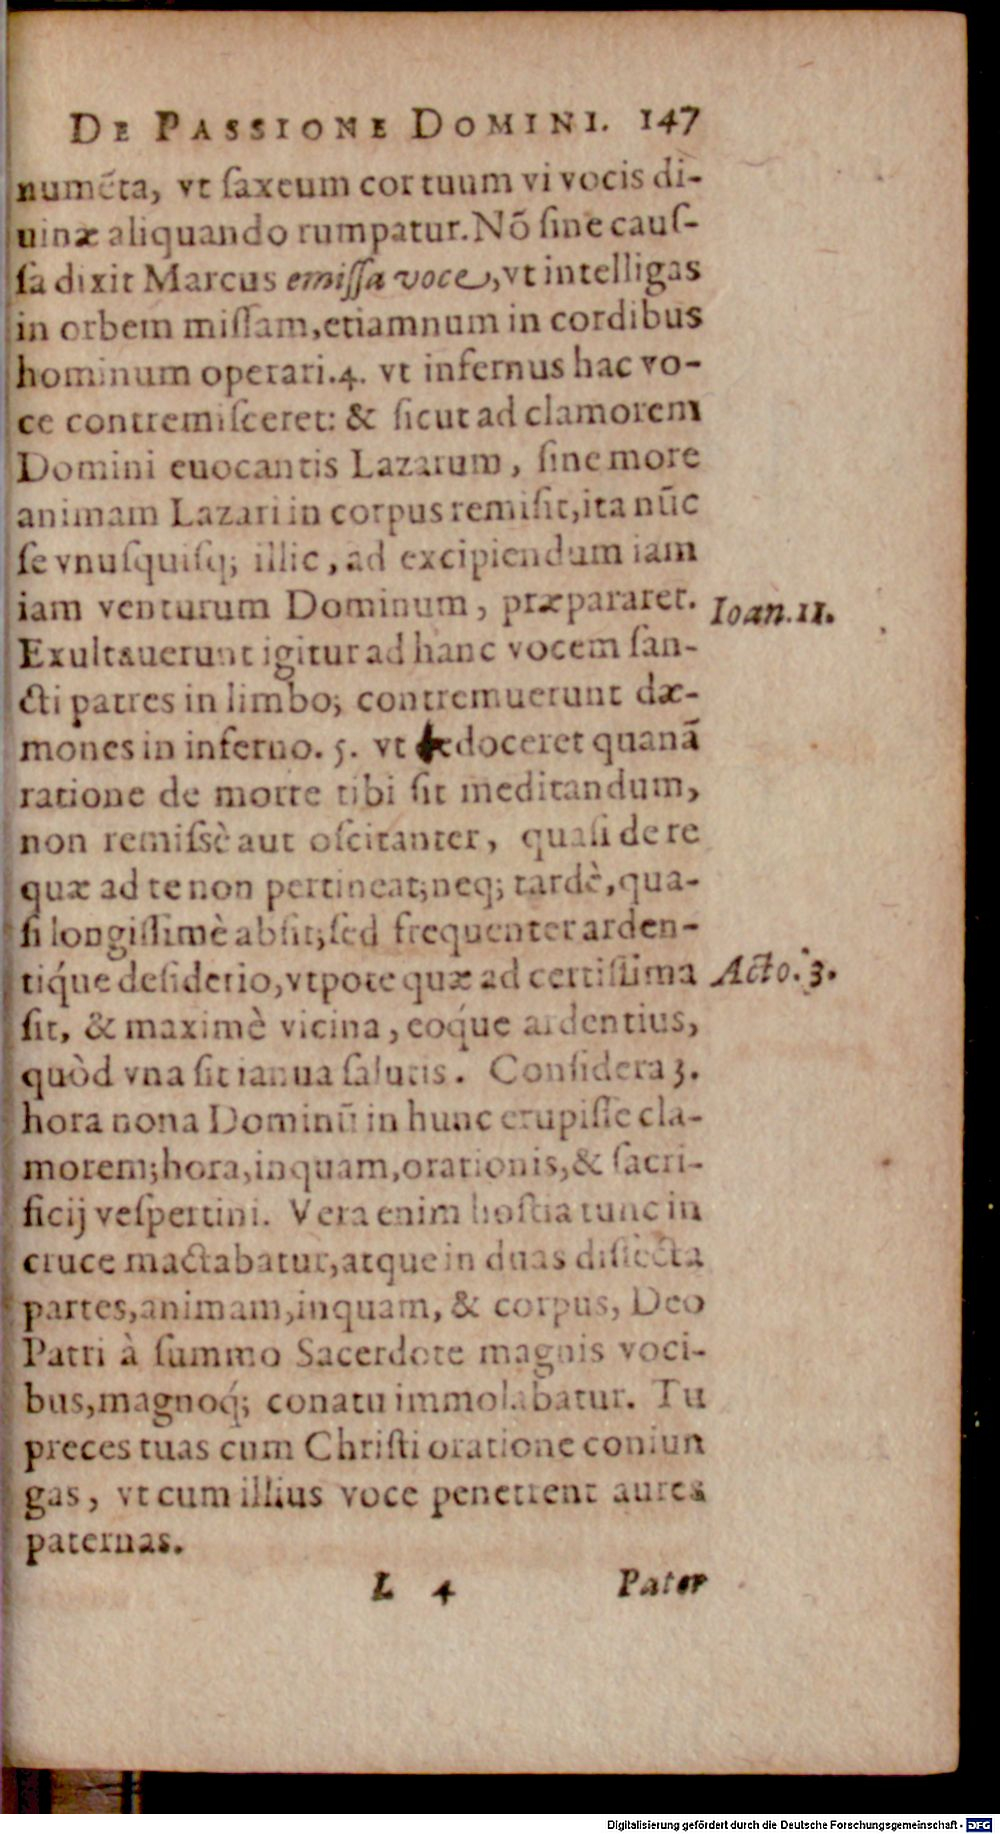 DE PASSIONE DOMINI. 147
numẽta, vt ſaxeum cor tuum vi vocis di-
uinæ aliquando rumpatur. Nõ ſine cauſ-
ſa dixit Marcus emiſſa voce, vt intelligas
in orbem miſſam, etiamnum in cordibus
hominum operari. 4. vt infernus hac vo-
ce contremiſceret: & ſicut ad clamorem
Domini euocantis Lazarum, ſine more
animam Lazari in corpus remiſit, ita nũc
ſe vnuſquiſq; illic, ad excipiendum iam
iam venturum Dominum, præpararet. Ioan. 11.
Exultauerunt igitur ad hanc vocem ſan-
cti patres in limbo; contremuerunt dæ-
mones in inferno. 5. vt doceret quanã
ratione de morte tibi ſit meditandum,
non remiſsè aut oſcitanter, quaſi de re
quæ ad te non pertineat; neq; tardè, qua-
ſi longiſſimè abſit; ſed frequenter arden-
tíque deſiderio, vtpote quæ ad certiſſima Acto. 3.
ſit, & maximè vicina, eoq́ue ardentius,
quòd vna ſit ianua ſalutis. Conſidera 3.
hora nona Dominũ in hunc erupiſſe cla-
morem; hora, inquam, orationis, & ſacri-
ficij veſpertini. Vera enim hoſtia tunc in
cruce mactabatur, atque in duas diſſecta
partes, animam, inquam, & corpus, Deo
Patri à ſummo Sacerdote magnis voci-
bus, magnoq́; conatu immolabatur. Tu
preces tuas cum Chriſti oratione coniun
gas, vt cum illius voce penetrent aures
paternas.
L 4 Pater
Digitalisierung gefördert durch die Deutsche Forschungsgemeinschaft - DFG